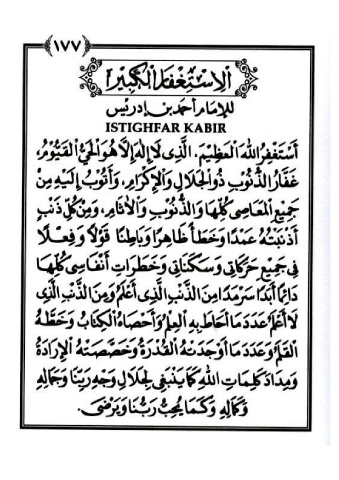 ﴿١٧٧﴾
الِاسْتِغْفَارُ الْكَبِيرُ
لِلْإِمَامِ أَحْمَدَ بْنِ إِدْرِيسَ
ISTIGHFAR KABIR
أَسْتَغْفِرُ اللهَ الْعَظِيْمَ. الَّذِى لَا إِلٰهَ إِلَّا هُوَ الْحَيُّ الْقَيُّوْمُ،
غَفَّارُ الذُّنُوْبِ ذُو الْجَلَالِ وَالْإِكْرَامِ، وَأَتُوْبُ إِلَيْهِ مِنْ
جَمِيْعِ الْمَعَاصِى كُلِّهَا وَالذُّنُوْبِ وَالْأٰثَامِ، وَمِنْ كُلِّ ذَنْبٍ
أَذْنَبْتُهُ عَمْدًا وَخَطَأً ظَاهِرًا وَبَاطِنًا قَوْلًا وَفِعْلًا
فِى جَمِيْعِ حَرَكَاتِى وَسَكَنَاتِى وَخَطَرَاتِى وَأَنْفَاسِى كُلِّهَا
دَائِمًا أَبَدًا سَرْمَدًا مِنَ الذَّنْبِ الَّذِى أَعْلَمُ وَمِنَ الذَّنْبِ الَّذِى
لَا أَعْلَمُ عَدَدَ مَا أَحَاطَ بِهِ الْعِلْمُ وَأَحْصَاهُ الْكِتَابُ وَخَطَّهُ
الْقَلَمُ وَعَدَدَ مَا أَوْجَدَتْهُ الْقُدْرَةُ وَخَصَّصَتْهُ الْإِرَادَةُ
وَمِدَادَ كَلِمَاتِ اللهِ كَمَا يَنْبَغِى لِجَلَالِ وَجْهِ رَبِّنَا وَجَمَالِهِ
وَكَمَالِهِ وَكَمَا يُحِبُّ رَبُّنَا وَيَرْضَى.